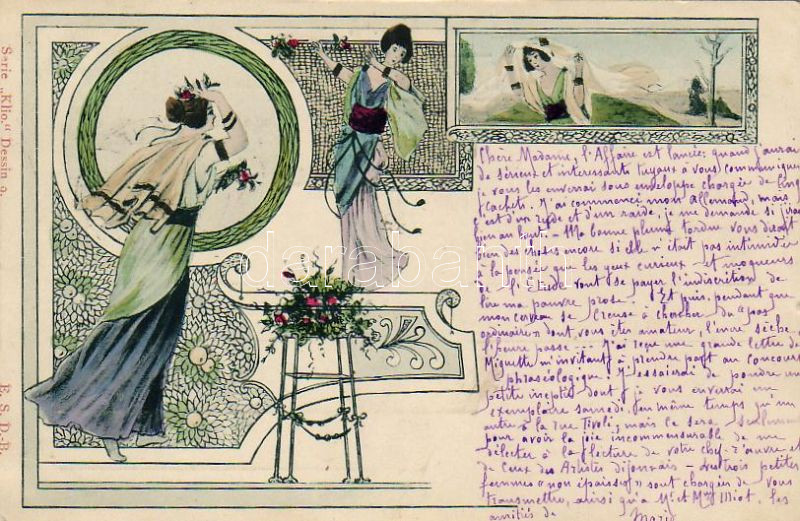 Serie „Klio." Dessin 9.
E. S. D.-B.
Chère Madame, l'Affaire est lancée; quand j'aurai
de sérieux et interessants tuyaux à vous communiquer
je vous les enverrai sous enveloppe chargée de cinq
cachets. J'ai commencé mon Allemand, mais
c'est d'un raide et d'un raide, je me demande si j'irai
Ma bonne plume tordue vous dirait
bien des choses encore si elle n'était pas intimidée
à la pensée que les yeux curieux et moqueurs
vont se payer l'indiscrétion de
lire ma pauvre prose. Et puis, pendant que
mon cerveau se creuse à chercher du "pas
ordinaire" dont vous êtes amateur, l'encre sèche
l'heure passe — J'ai reçu une grande lettre de
Miquette m'invitant à prendre part au concours
phraséologique. J'essaierai de pondre un
petite ineptie dont je vous enverrai un
exemplaire samedi, en même temps qu'un
autre à la rue Tivoli; mais ce sera seulement
pour avoir la joie incommensurable de me
délecter à la lecture de votre chef-d'œuvre et
de ceux des Artistes dijonnais — Les trois petites
femmes "non épaisses" sont chargées de vous
transmettre, ainsi qu'à Mr et Mme Miot, les
amitiés de
darabanth